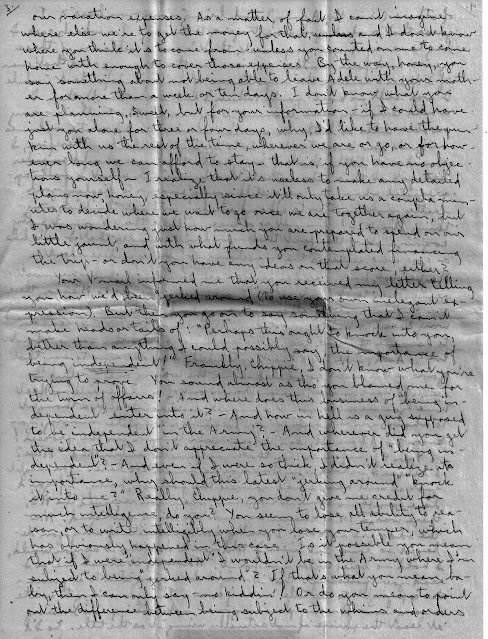 3.
our vacation expenses. As a matter of fact I can't imagine
where else we're to get the money for that, unless and I don't know
where you think it's to come from unless you counted on me to come
home with enough to cover those expenses. By the way, honey, you
say something about not being able to leave Adele with your moth-
er for more than a week or ten days. I don't know what you
are planning, Sweet, but for your information if I could have
just you alone for three or four days, why, I'd like to have the pun-
kin with us the rest of the time, wherever we are or go, or for how-
ever long we can afford to stay - that is, if you have no objec-
tions yourself. I realize that it's useless to make any detailed
plans now, honey, especially since it'll only take us a coupla min-
utes to decide where we want to go once we are together again, but
I was wondering just how much you are prepared to spend on our
little jaunt, and with what funds you contemplated financing
the trip - or don't you have any ideas on that score, either?
Your V-mail informed me that you received my letter telling
you how we'd been jerked around (to use your own inelegant ex-
pression). But then you go on to say something that I can't
make heads or tails of: "Perhaps this ought to knock into you,
better than anything I could possibly say, the importance of
being independent!" Frankly, Chippie, I don't know what you're
trying to prove. You sound almost as tho you blamed me for
the turn of affairs - And where does this business of "being in-
dependent" enter into it? - And how in hell is a guy supposed
to be independent in the Army? - And wherever did you get
the idea that I don't appreciate the importance of being in-
dependent? - And even if I were so thick I didn't realize its
importance, why should this latest "jerking around" knock
it into me? Really, Chippie, you don't give me credit for
much intelligence, do you? You seem to lose all ability to rea-
son, or to write intelligibly when you lose your temper, which
has obviously happened in this case. Is it possible you mean
that if I were independent I wouldn't be in the Army where I'm
subject to being "jerked around"? If that's what you mean, ba-
by, then I can only say - no kiddin'! Or do you mean to point
out the difference between being subject to the whims and orders